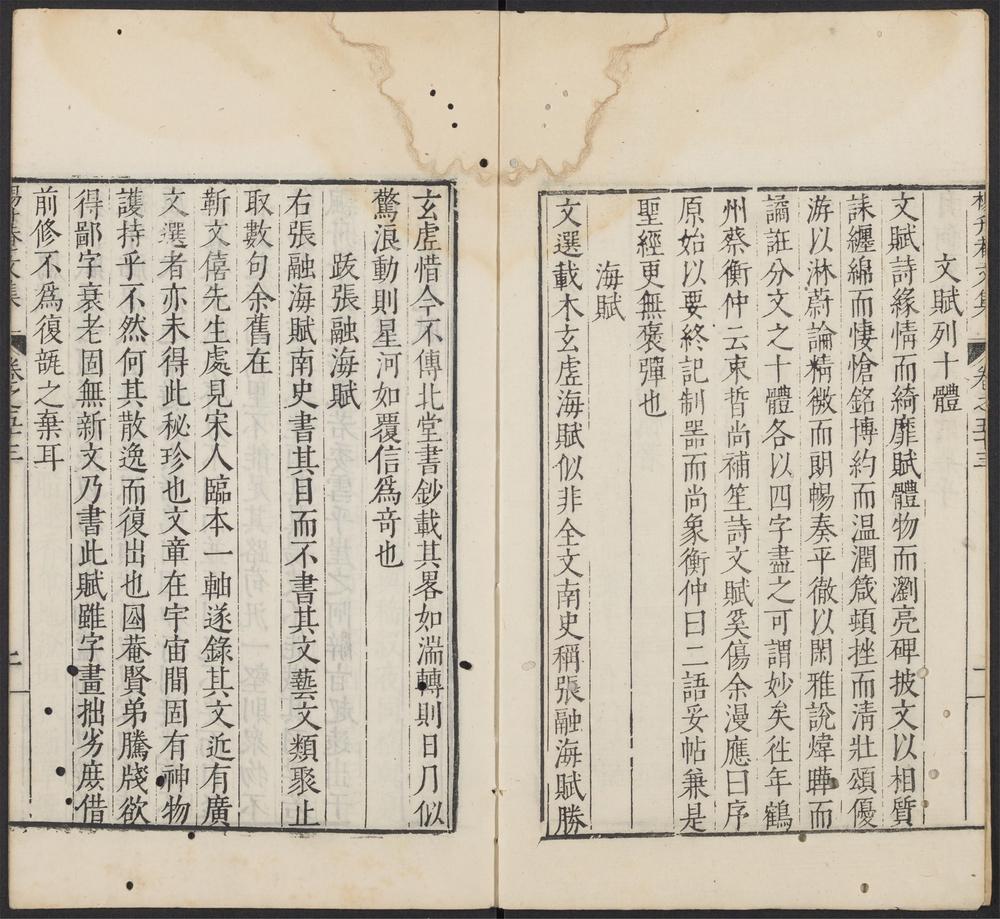 文賦列十體
文賦詩緣情而綺靡賦體物而瀏亮碑披文以相質
誄纏綿而悽愴銘博約而温潤箴頓挫而清壯頌優
游以淋蔚論精微而朗暢奏平徹以閑雅說煒曄而
譎誑分文之十體各以四字盡之可謂妙矣徃年鶴
州蔡衡仲云束晳尚補笙詩文賦奚傷余漫應曰序
原始以要終記制器而尚象衡仲曰二語妥帖兼是
聖經更無褒彈也
海賦
文選載木玄虛海賦似非全文南史稱張融海賦勝
玄虛惜今不傳北堂書鈔載其畧如湍轉則日月似
驚浪動則星河如覆信爲竒也
跋張融海賦
右張融海賦南史書其目而不書其文藝文類聚止
取數句余舊在
靳文僖先生處見宋人臨本一軸遂錄其文近有廣
文選者亦未得此秘珍也文章在宇宙間固有神物
護持乎不然何其散逸而復出也㘝菴賢弟騰牋欲
得鄙字衰老固無新文乃書此賦雖字畫拙劣庻借
前修不爲復瓿之棄耳
文集
卷之五十三